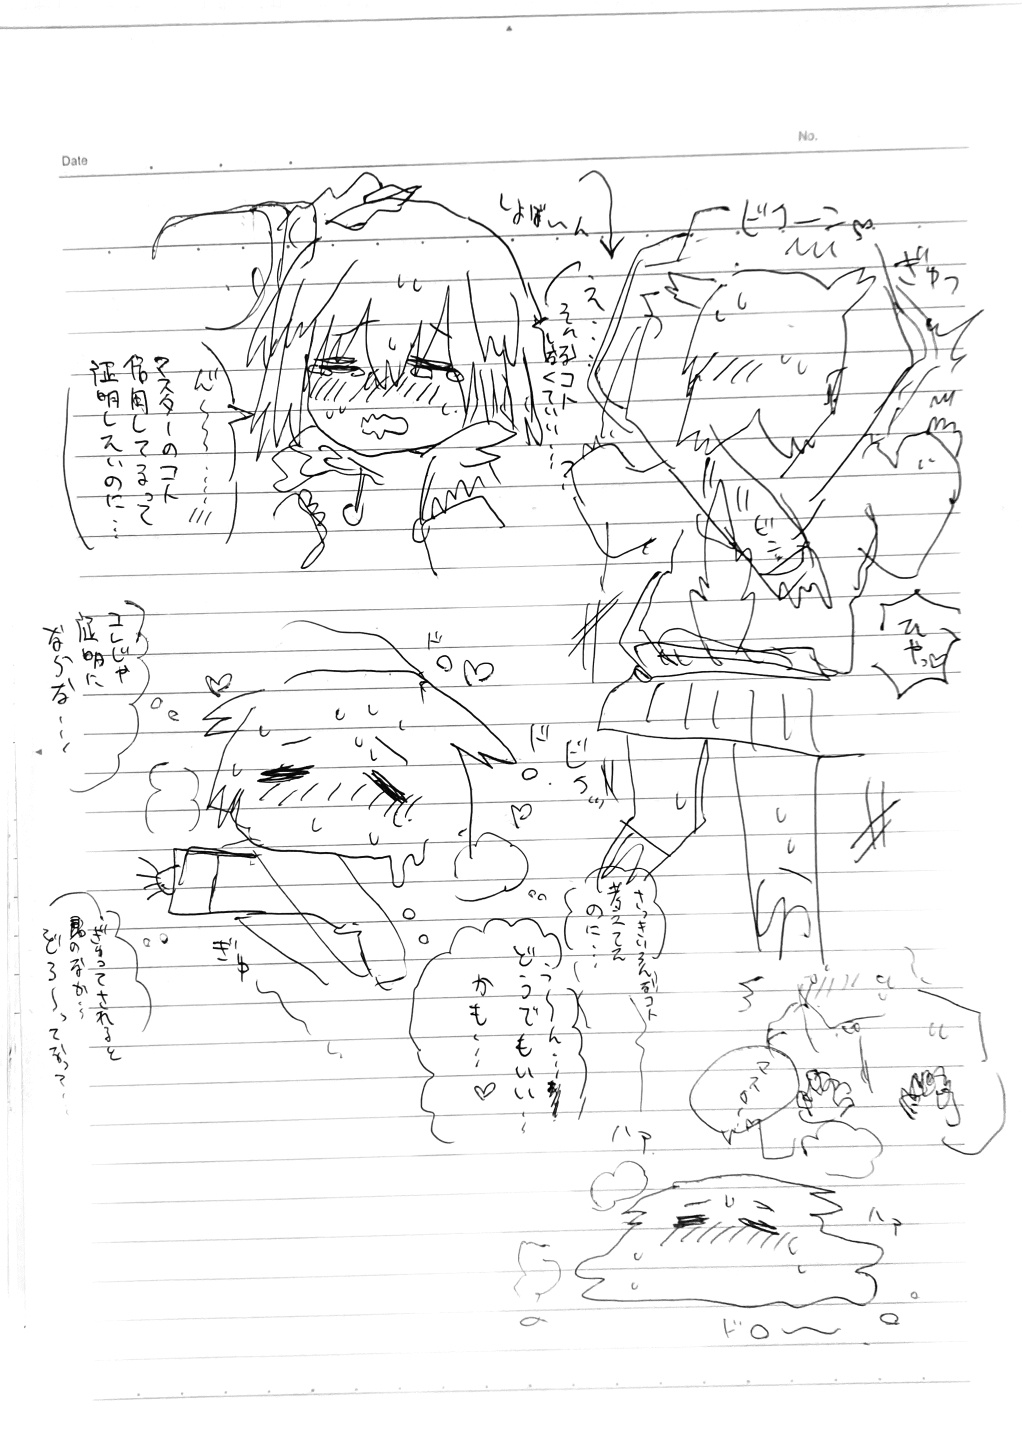 Date
No.
しょぼーん
ビクーン
ぎゅっ
え…
そんなコト
しなくていい…っ
ん〜〜…
マスターのコト
信用してるって
証明したいのに…
ビン
ひゃっ♡
コレじゃ
証明に
ならな…〜
ドロ
ド
ビ
ぎゅ
ぎゅってされると
頭のなか…
どろ〜ってなって…
さっきいろんなコト
考えてた
のに…
う〜ん…
どうでもいい…
かも…♡
マスタ
の
ハァ
ハァ
ドロ〜